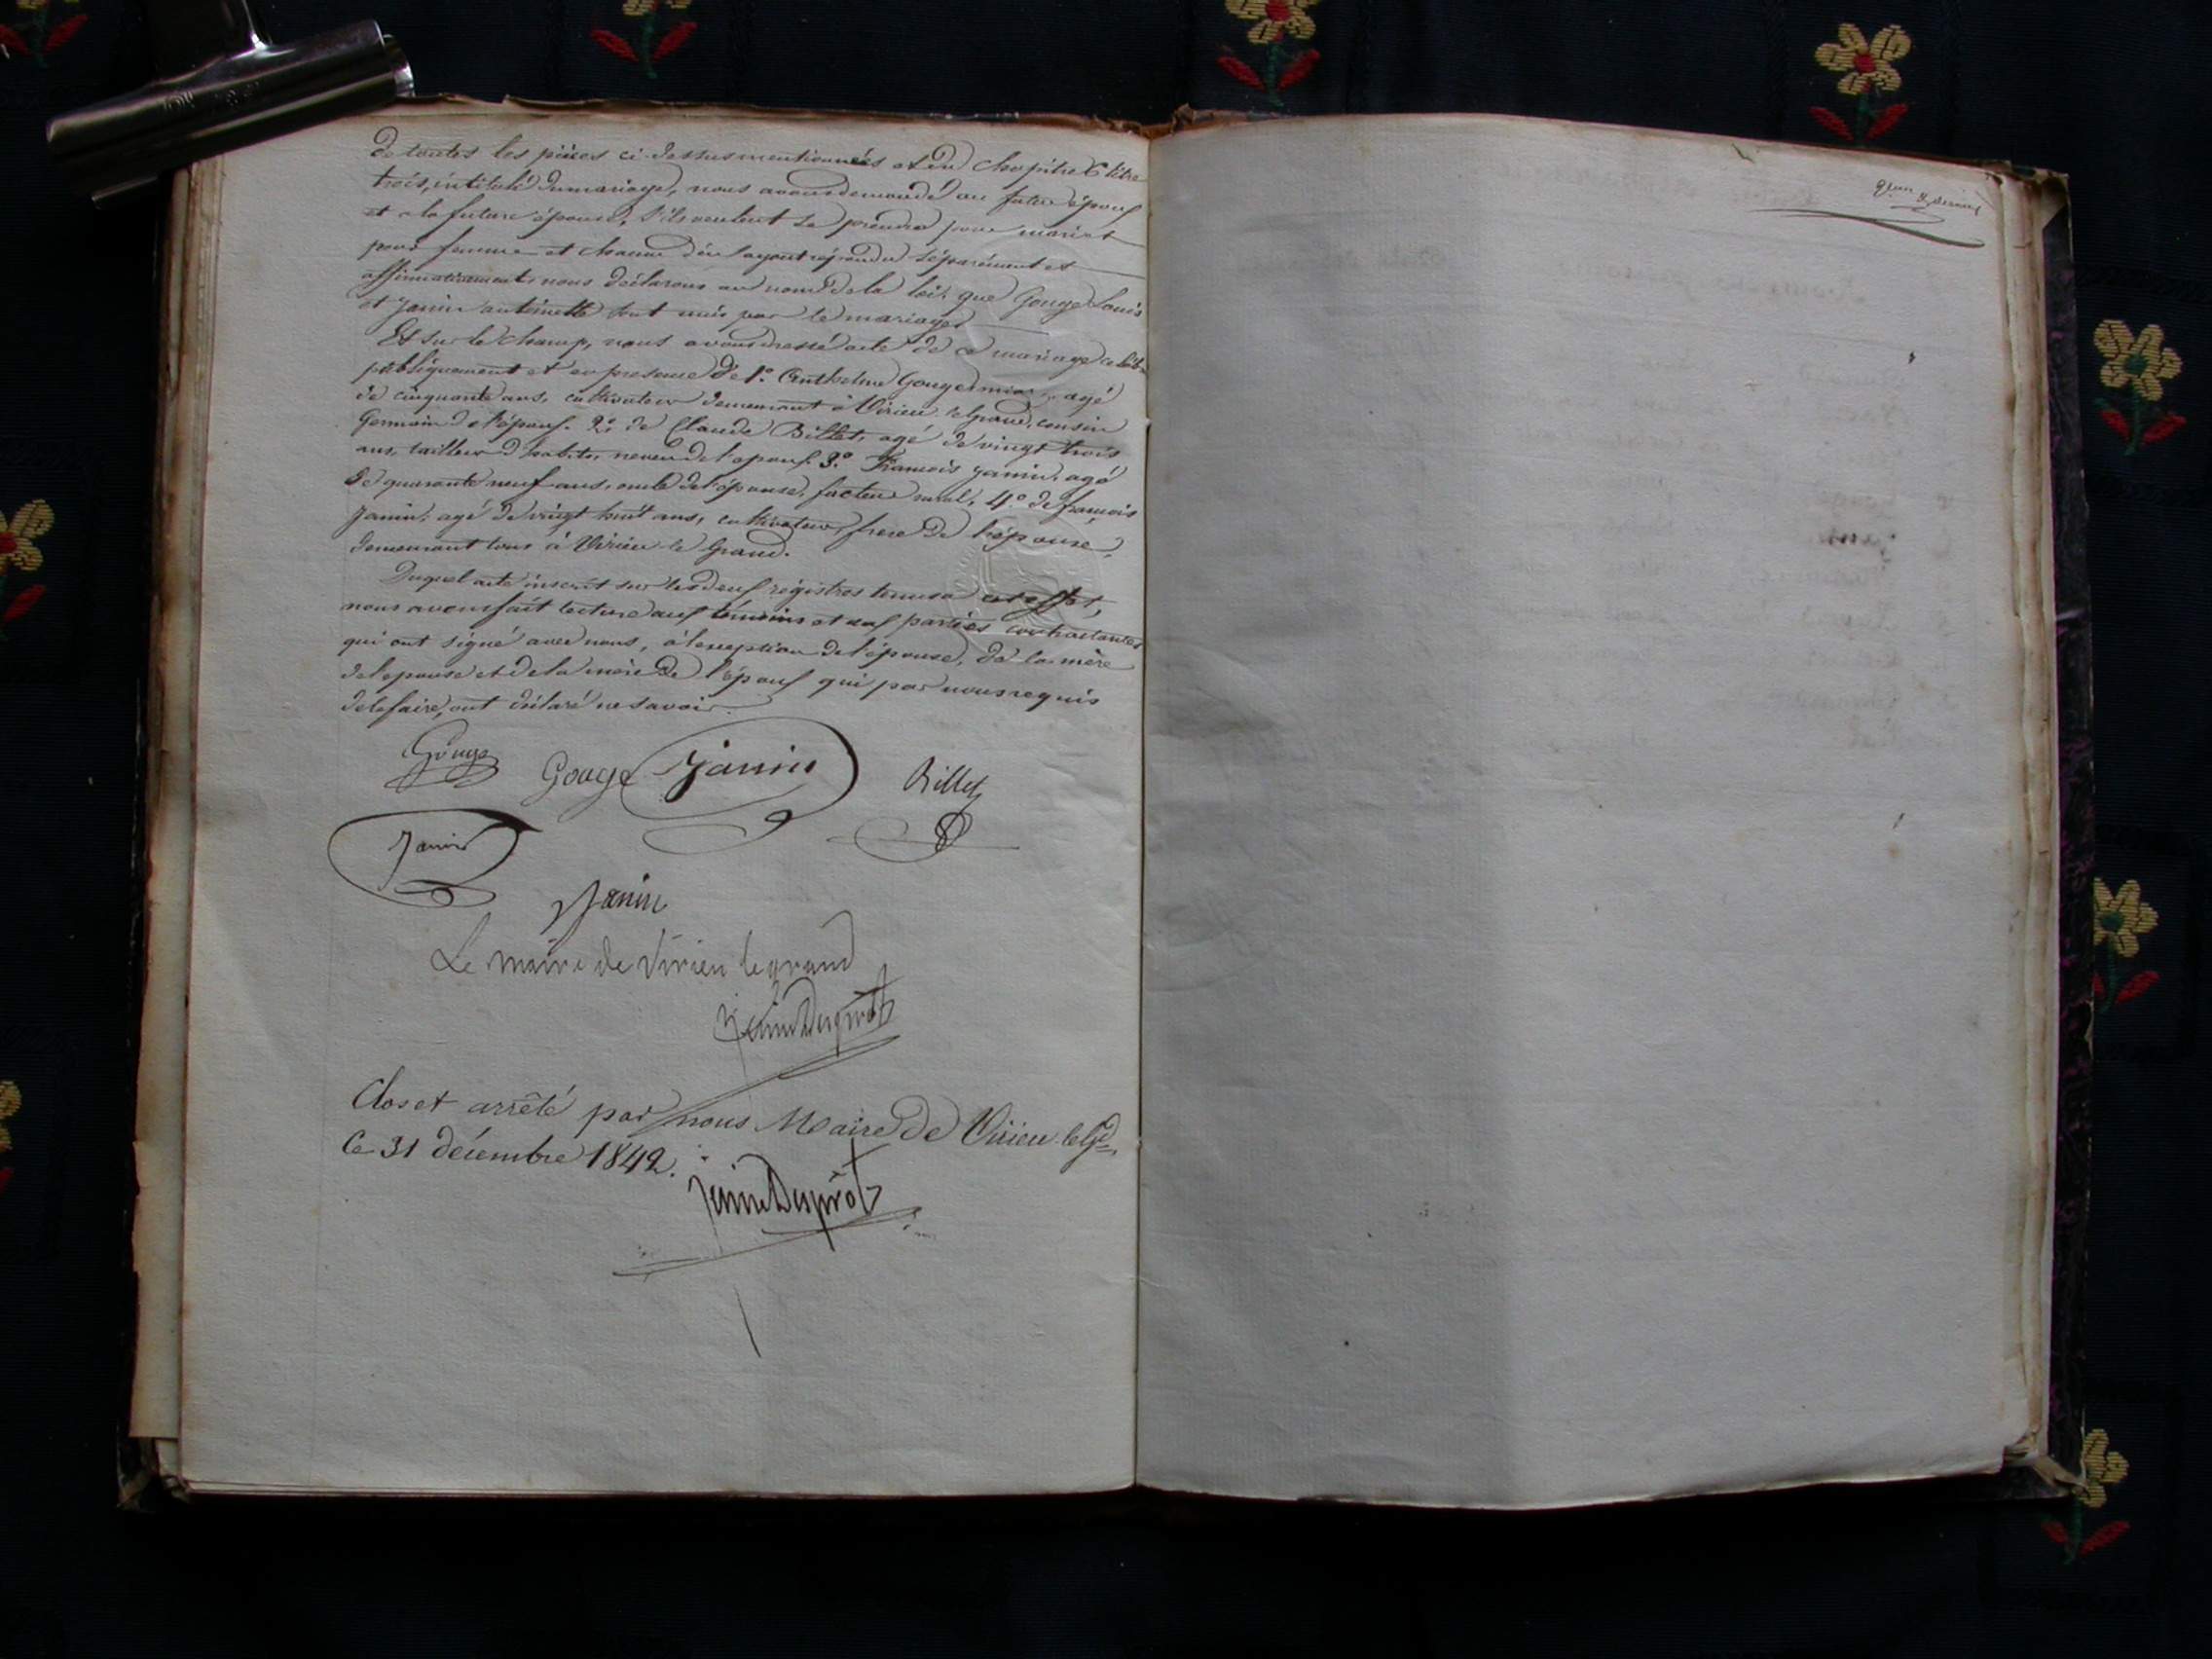 de toutes les pièces ci-dessus mentionnées et du chapitre 6 titre
trois, intitulé du mariage, nous avons demandé au futur époux
et à la future épouse, s'ils veulent se prendre pour mari et
pour femme et chacun d'eux ayant répondu séparément et
affirmativement, nous déclarons au nom de la loi, que Gouge Louis
et Janin antoinette sont unis par le mariage
Et sur le champ, nous avons dressé acte de ce mariage célébré
publiquement et en presence de 1.° Anthelme Gouge agé
de cinquante ans, cultivateur demeurant à Virieu le Grand, cousin
Germain de l'époux. 2.° de Claude Billet, agé de vingt trois
ans, tailleur d'habits, neveu de l'epoux. 3.° François Janin, agé
de quarante neuf ans, oncle de l'épouse, facteur rural, 4.° de françois
Janin, agé de vingt huit ans, cultivateur, frere de l'épouse,
demeurant tous à Virieu le Grand.
Duquel acte inscrit sur les deux régistres tenus a cet effet,
nous avons fait lecture aux témoins et aux parties contractantes
qui ont signé avec nous, à l'exception de l'épouse, de la mère
de l'epouse et de la mère de l'époux qui par nous requis
de le faire, ont déclaré ne savoir.
Gouge Gouge Janin Billet
Janin
Janin
Le maire de Virieu le grand
Clos et arrêté par nous Maire de Virieu le Gd.
Ce 31 décembre 1842.